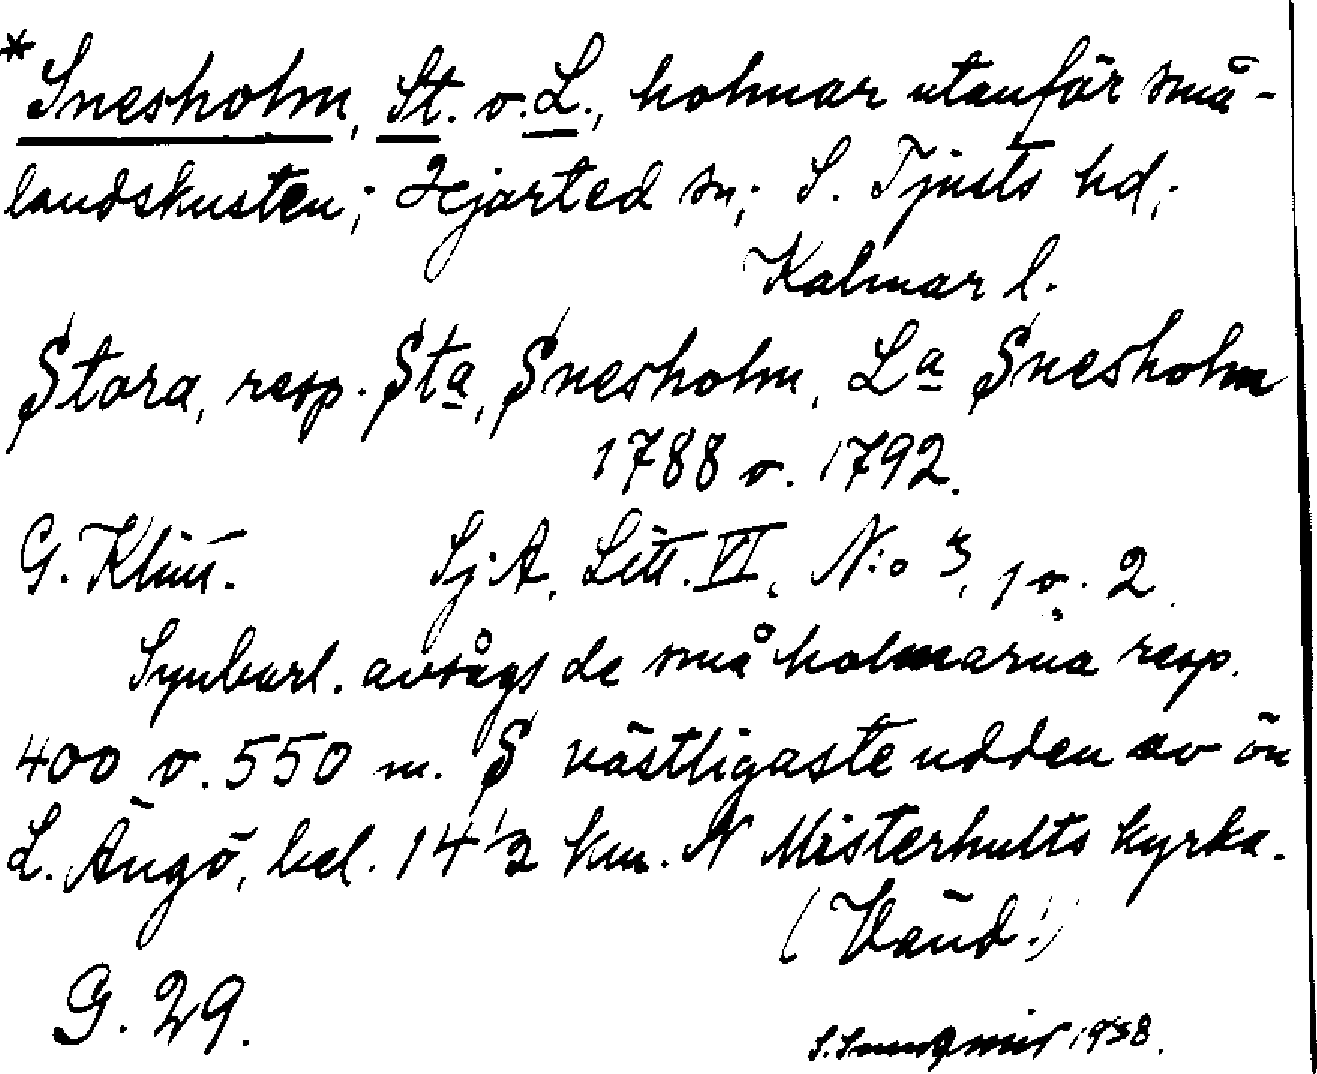 * Snesholm, St. o. L., holmar utanför små-
landskusten; Hjorted sn; S. Tjusts hd;
Kalmar l.
Stora, resp. Sta, Snesholm, La Snesholm
1788 o. 1792.
G. Klint. Sj.A. Litt. VI, N:o 3, 1 o. 2.
Synbarl. avsågs de små holmarna resp.
400 o. 550 m. S västligaste udden av ön
L. Ängö, bel. 14 1/2 km. N Misterhults kyrka.
(Vänd!)
G. 29.
1938.